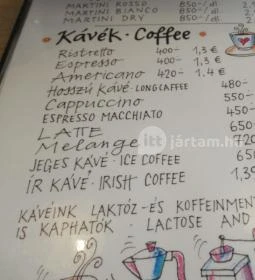 MARTINI ROSSO 850-/dl.
MARTINI BIANCO 850-/dl. 2,
MARTINI DRY 850-/dl. 2,
Kávék · Coffee
Ristretto 400- 1,3 €
Espresso 400- 1,3 €
Americano 420- 1,4 €
Hosszú kávé · LONG CAFFEE 480-
Cappuccino 550-
ESPRESSO MACCHIATO 450-
LATTE 650
Melange 720
JEGES KÁVÉ · ICE COFFEE 650
ÍR KÁVÉ · IRISH COFFEE 1,39
KÁVÉINK LAKTÓZ - ÉS KOFFEINMENT
IS KAPHATÓK - LACTOSE AND
itt jártam.h